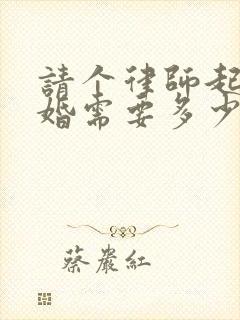 請个律師起
婚需要多少
蔡嚴紅